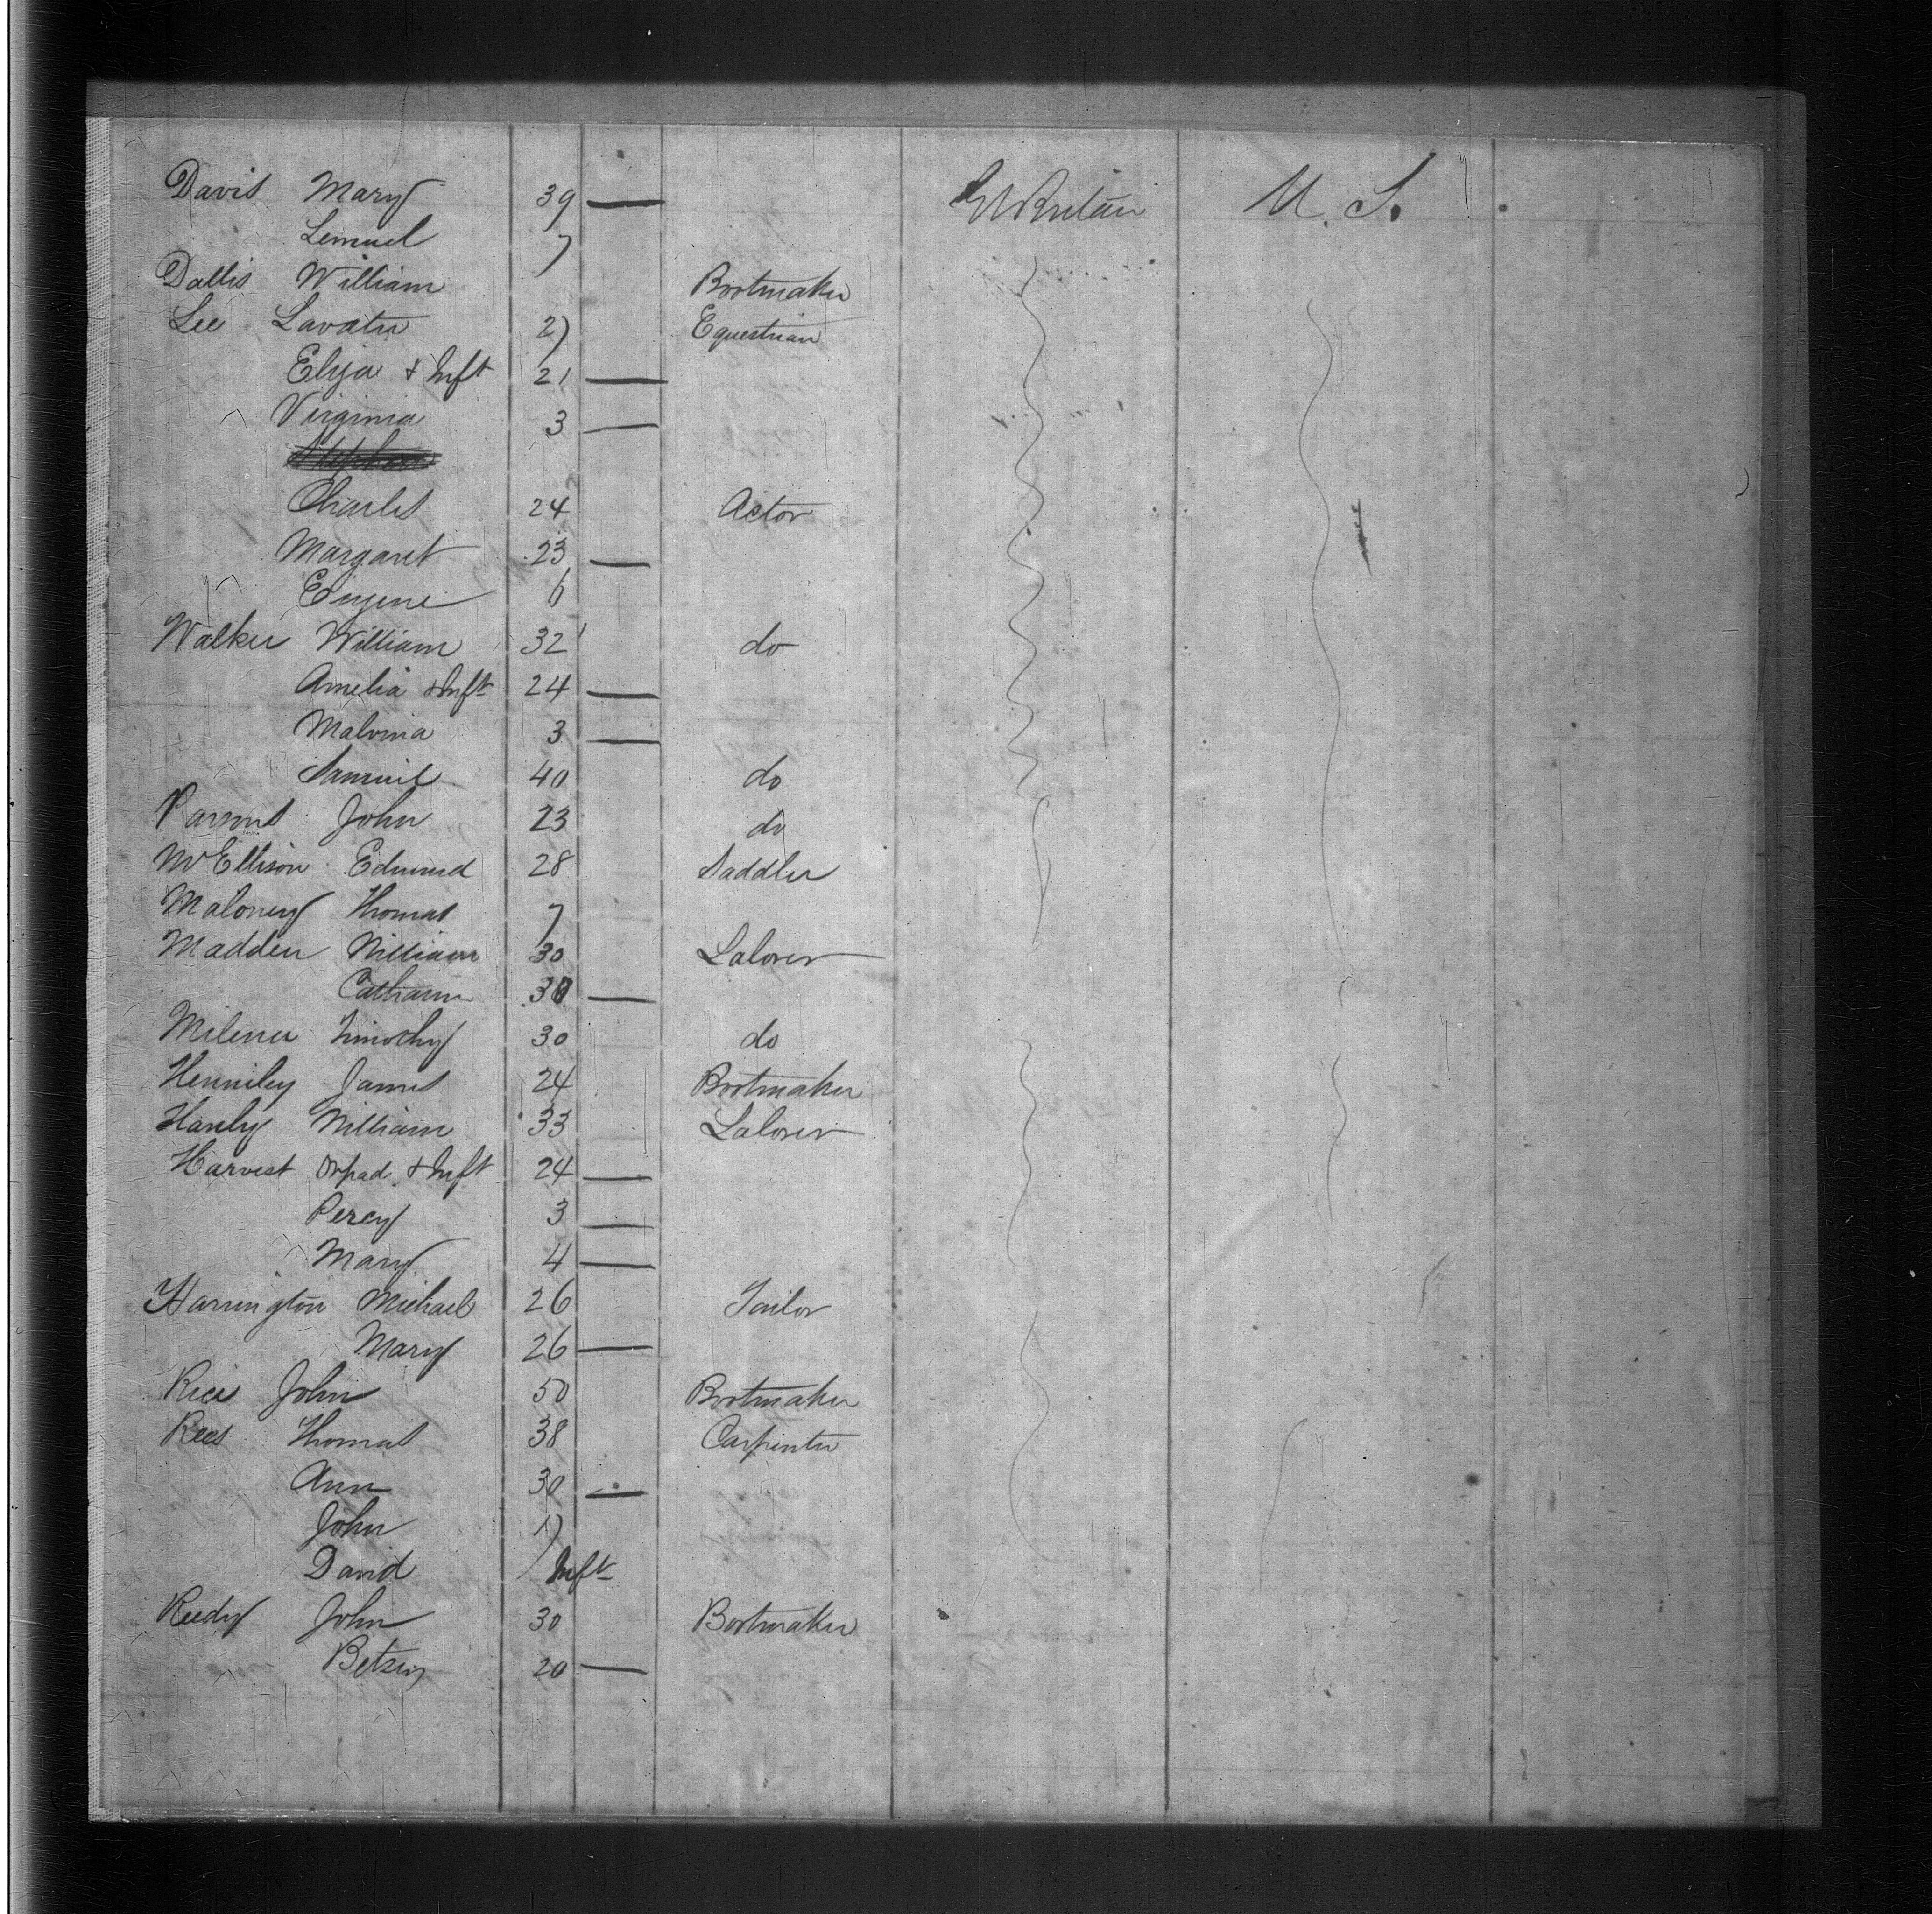 Davis Mary 39 — Gt Britain U. S.
Lemuel 7
Dallis William Bootmaker
Lee Lavater 27 Equestrian
Eliza & Inft 21 —
Virginia 3 —
Charles 24 Actor
Margaret 23 —
Eugene 6
Walker William 32 do
Amelia & Inft 24 —
Malvina 3 —
Samuel 40 do
Parsons John 23 do
McEllison Edmund 28 Saddler
Maloney Thomas 7
Madden William 30 Laborer
Catharine 30 —
Timothy 30 do
James 24 Bootmaker
Hanly William 33 Laborer
Harvest & Inft 24 —
Percy 3 —
Mary 4 —
Harrington Michael 26 Tailor
Mary 26 —
Rice John 50 Bootmaker
Rees Thomas 38 Carpenter
Ann 30 —
John 17
David Inft
Reedy John 30 Bootmaker
Betsey 20 —